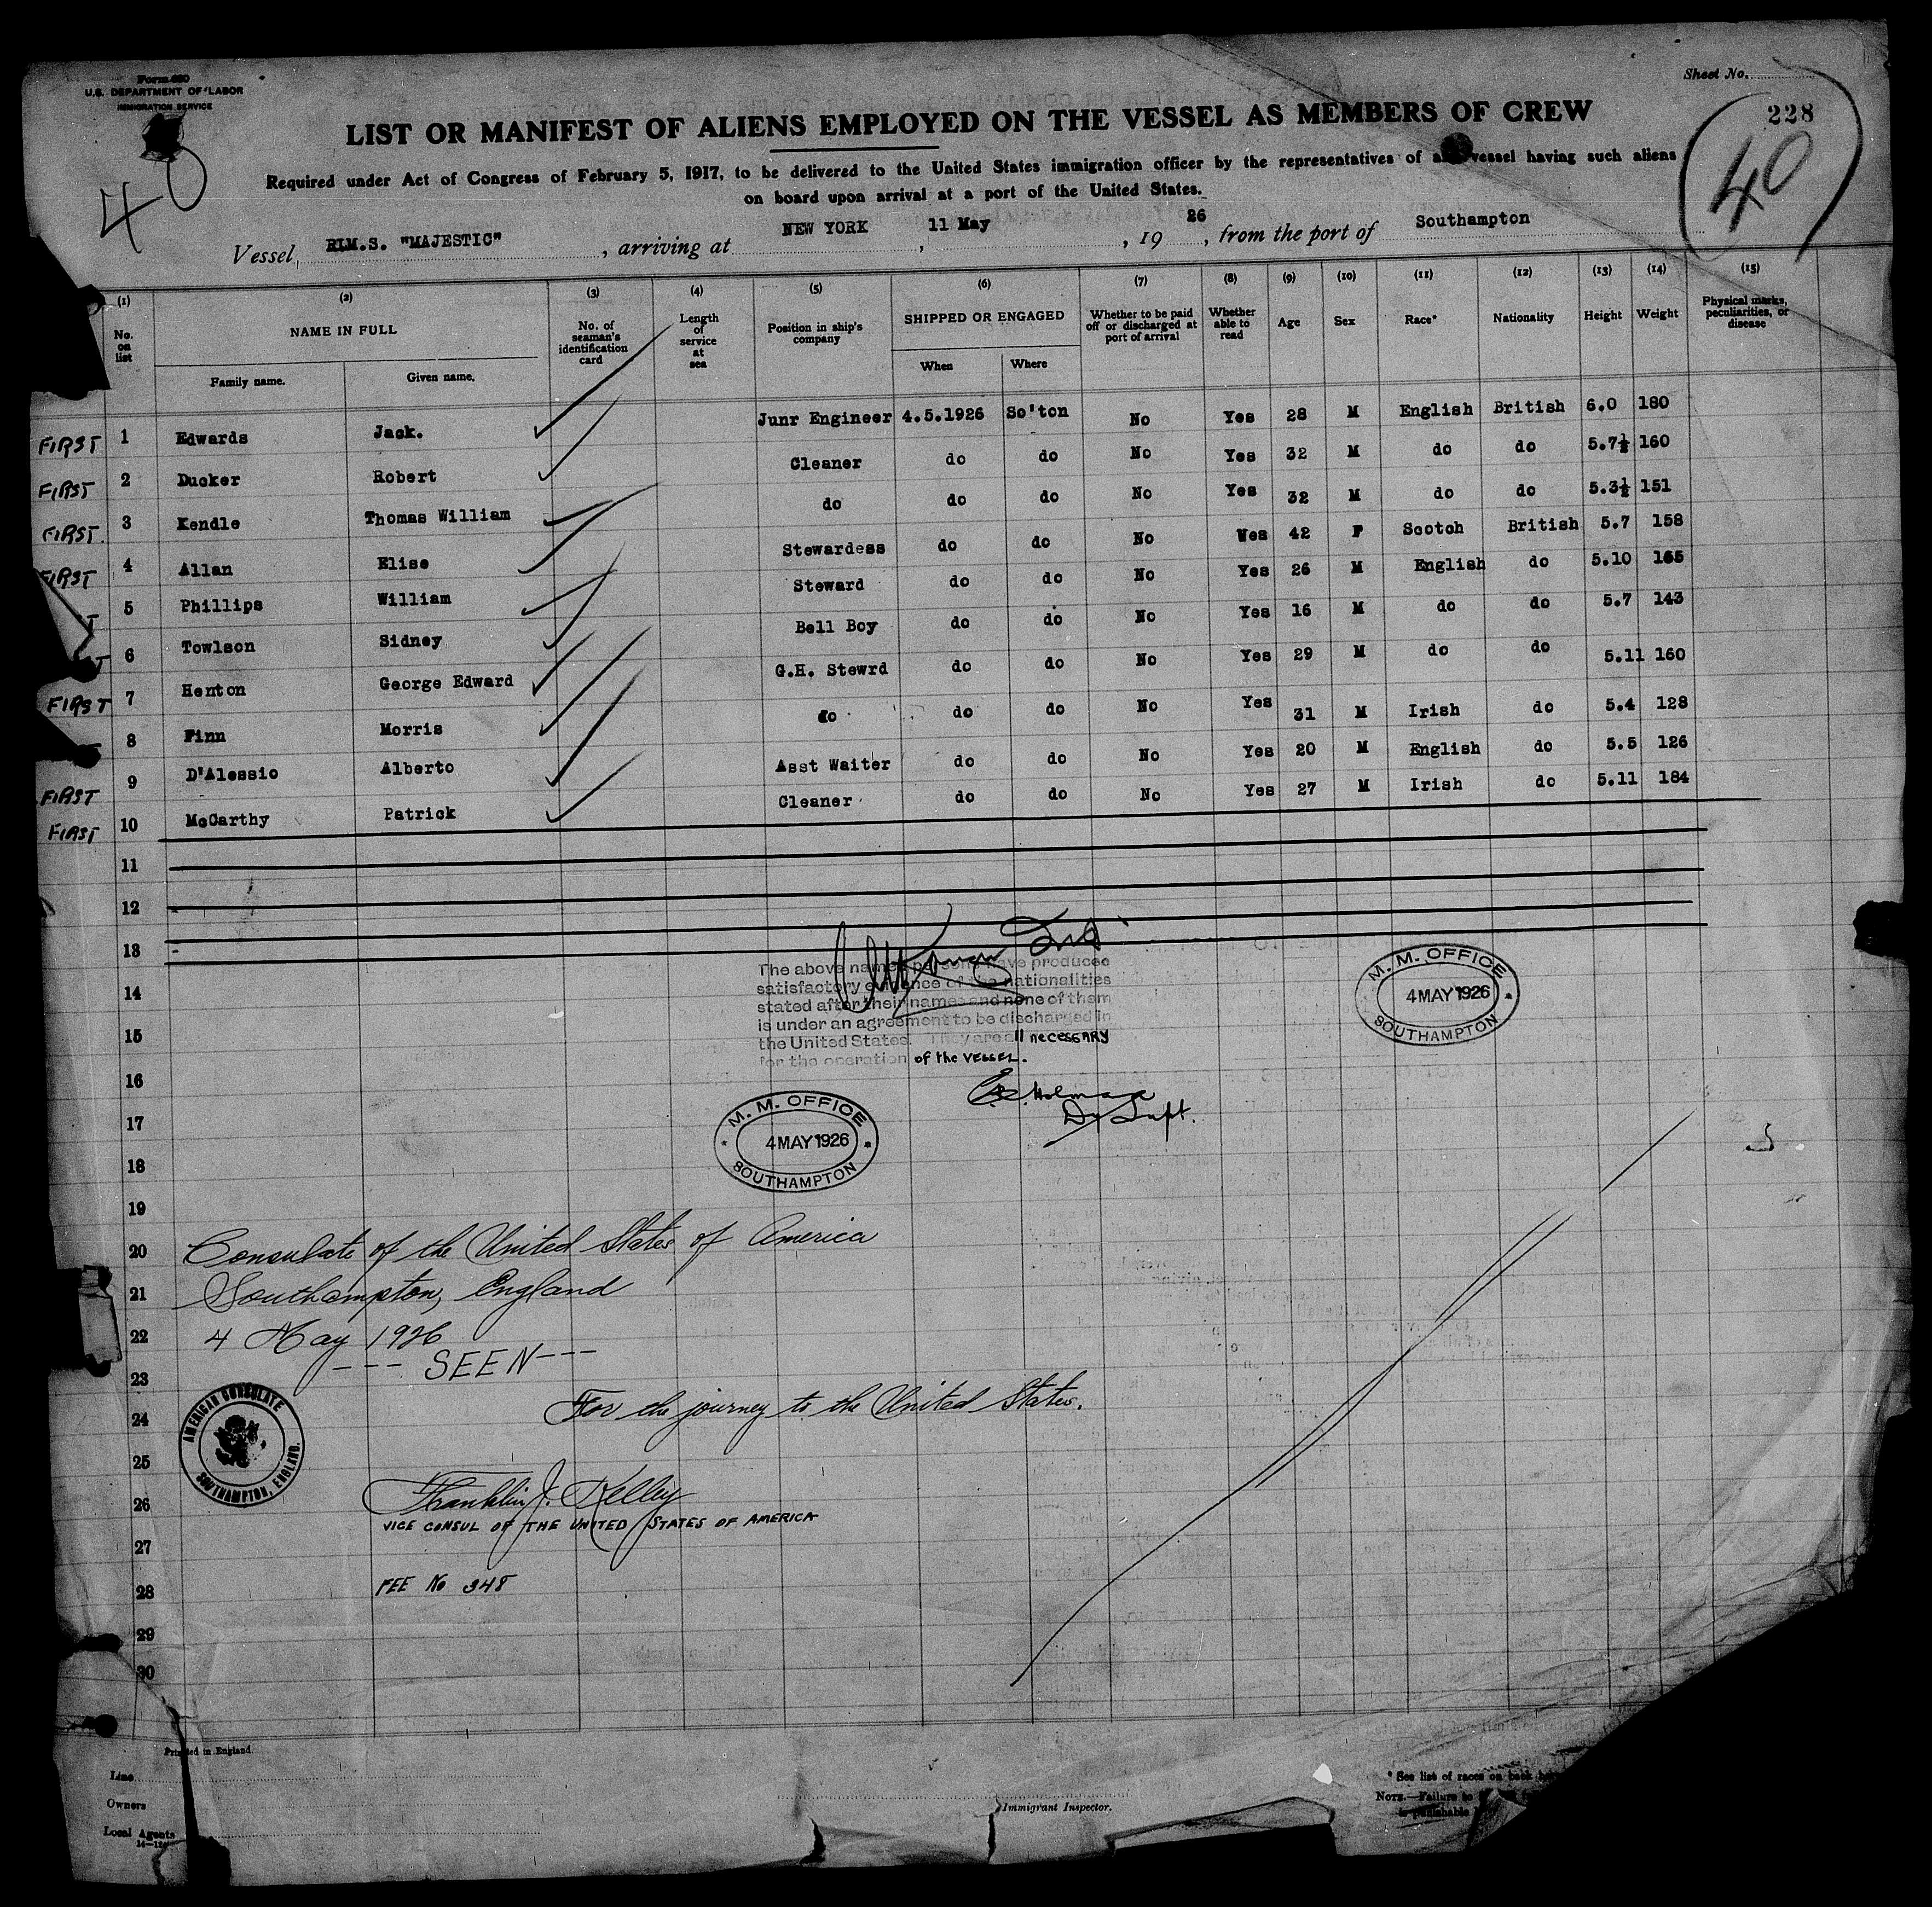 Form 680
U.S. DEPARTMENT OF LABOR
IMMIGRATION SERVICE
Sheet No.
228
LIST OR MANIFEST OF ALIENS EMPLOYED ON THE VESSEL AS MEMBERS OF CREW
40
40
Required under Act of Congress of February 5, 1917, to be delivered to the United States immigration officer by the representatives of any vessel having such aliens
on board upon arrival at a port of the United States.
Vessel R.M.S. "MAJESTIC", arriving at NEW YORK, 11 May, 1926, from the port of Southampton
(1) (2) (3) (4) (5) (6) (7) (8) (9) (10) (11) (12) (13) (14) (15)
No. on list NAME IN FULL No. of seaman's identification card Length of service at sea Position in ship's company SHIPPED OR ENGAGED Whether to be paid off or discharged at port of arrival Whether able to read Age Sex Race* Nationality Height Weight Physical marks, peculiarities, or disease
Family name. Given name. When Where
FIRST 1 Edwards Jack. Junr Engineer 4.5.1926 So'ton No Yes 28 M English British 6.0 180
FIRST 2 Ducker Robert Cleaner do do No Yes 32 M do do 5.7½ 160
FIRST. 3 Kendle Thomas William do do do No Yes 32 M do do 5.3½ 151
FIRST 4 Allan Elise Stewardess do do No Yes 42 F Scotch British 5.7 158
T 5 Phillips William Steward do do No Yes 26 M English do 5.10 165
T 6 Towlson Sidney Bell Boy do do No Yes 16 M do do 5.7 143
FIRST 7 Henton George Edward G.H. Stewrd do do No Yes 29 M do do 5.11 160
8 Finn Morris do do do No Yes 31 M Irish do 5.4 128
FIRST 9 D'Alessio Alberto Asst Waiter do do No Yes 20 M English do 5.5 126
FIRST 10 McCarthy Patrick Cleaner do do No Yes 27 M Irish do 5.11 184
11
12
13
14
15
16
17
18
19
20
21
22
23
24
25
26
27
28
29
30
The above named persons have produced
satisfactory evidence of the nationalities
stated after their names and none of them
is under an agreement to be discharged in
the United States. They are all necessary
for the operation of the VESSEL.
Holman
Dy Supt.
M. M. OFFICE
4 MAY 1926
SOUTHAMPTON
M. M. OFFICE
4 MAY 1926
SOUTHAMPTON
Consulate of the United States of America
Southampton, England
4 May 1926
--- SEEN ---
For the journey to the United States.
AMERICAN CONSULATE
SOUTHAMPTON, ENGLAND.
Franklin J. Kelley
VICE CONSUL OF THE UNITED STATES OF AMERICA
FEE No 348
Printed in England.
Line
Owners
Local Agents
Immigrant Inspector.
* See list of races on back
NOTE.—Failure to
is punishable